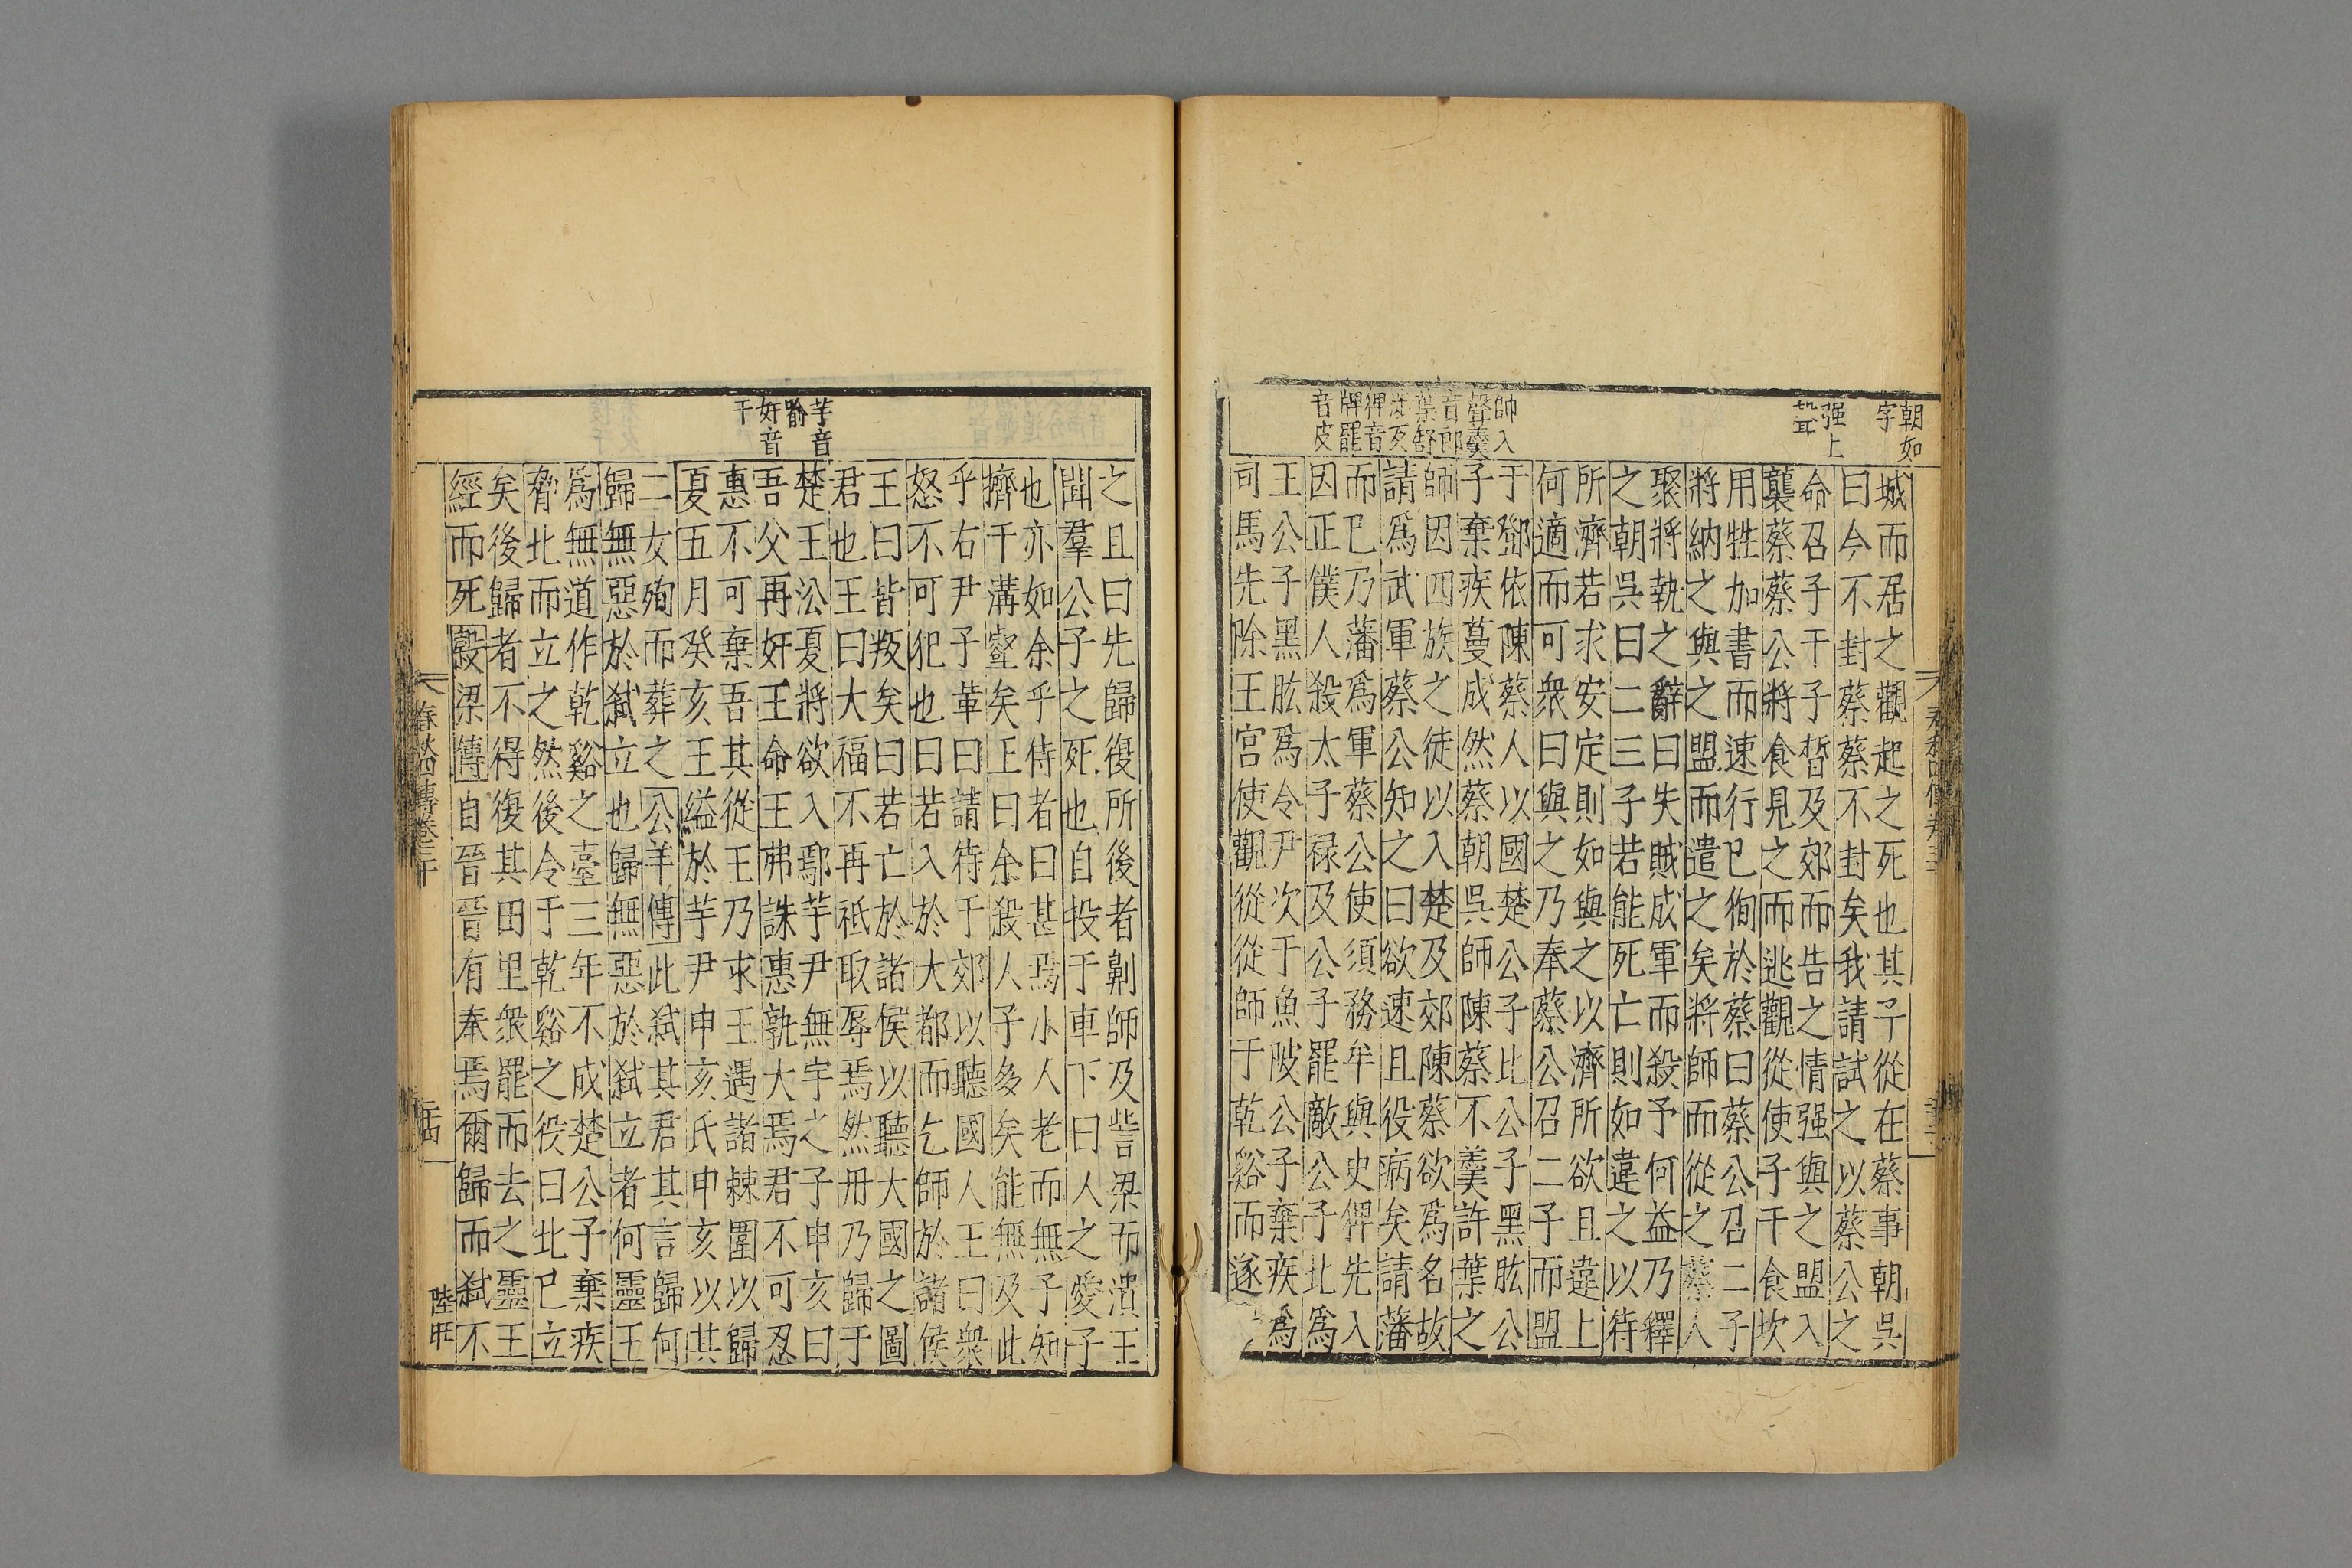 朝如
字
强上
聲
帥入
聲羹
音郎
葉舒
涉反
裨音
牌罷
音皮
城而居之觀起之死也其子從在蔡事朝吳
曰今不封蔡蔡不封矣我請試之以蔡公之
命召子干子晳及郊而告之情强與之盟入
襲蔡蔡公將食見之而逃觀從使子干食坎
用牲加書而速行已徇於蔡曰蔡公召二子
將納之與之盟而遣之矣將師而從之蔡人
聚將執之辭曰失賊成軍而殺予何益乃釋
之朝吳曰二三子若能死亡則如違之以待
所濟若求安定則如與之以濟所欲且違上
何適而可衆曰與之乃奉蔡公召二子而盟
于鄧依陳蔡人以國楚公子比公子黑肱公
子棄疾蔓成然蔡朝吳師陳蔡不羹許葉之
師因四族之徒以入楚及郊陳蔡欲爲名故
請爲武軍蔡公知之曰欲速且役病矣請藩
而已乃藩爲軍蔡公使須務牟與史猈先入
因正僕人殺太子禄及公子罷敵公子比爲
王公子黑肱爲令尹次于魚陂公子棄疾爲
司馬先除王宮使觀從從師于乾谿而遂
芋音
喻
奸音
干
之且曰先歸復所後者劓師及訾梁而潰王
聞羣公子之死也自投于車下曰人之愛子
也亦如余乎侍者曰甚焉小人老而無子知
擠于溝壑矣王曰余殺人子多矣能無及此
乎右尹子革曰請待于郊以聽國人王曰衆
怒不可犯也曰若入於大都而乞師於諸侯
王曰皆叛矣曰若亡於諸侯以聽大國之圖
君也王曰大福不再祗取辱焉然丹乃歸于
楚王㳂夏將欲入鄢芋尹無宇之子申亥曰
吾父再奸王命王弗誅惠孰大焉君不可忍
惠不可棄吾其從王乃求王遇諸棘圍以歸
夏五月癸亥王縊於芋尹申亥氏申亥以其
二女殉而葬之公羊傳此弑其君其言歸何
歸無惡於弑立也歸無惡於弑立者何靈王
爲無道作乾谿之臺三年不成楚公子棄疾
脅比而立之然後令于乾谿之役曰比已立
矣後歸者不得復其田里衆罷而去之靈王
經而死穀梁傳自晉晉有奉焉爾歸而弑不
春秋四傳卷三十
陸旺